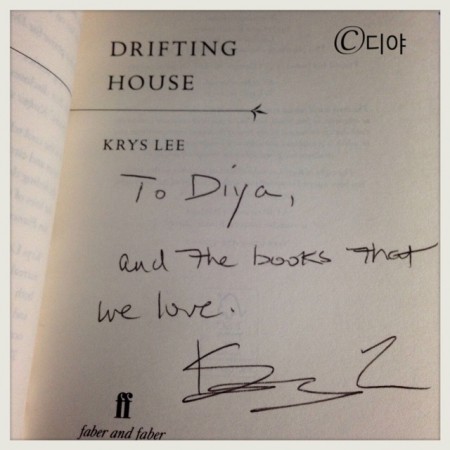 ©디야
DRIFTING
HOUSE
KRYS LEE
To Diya,
and the books that
we love.
ff
faber and faber